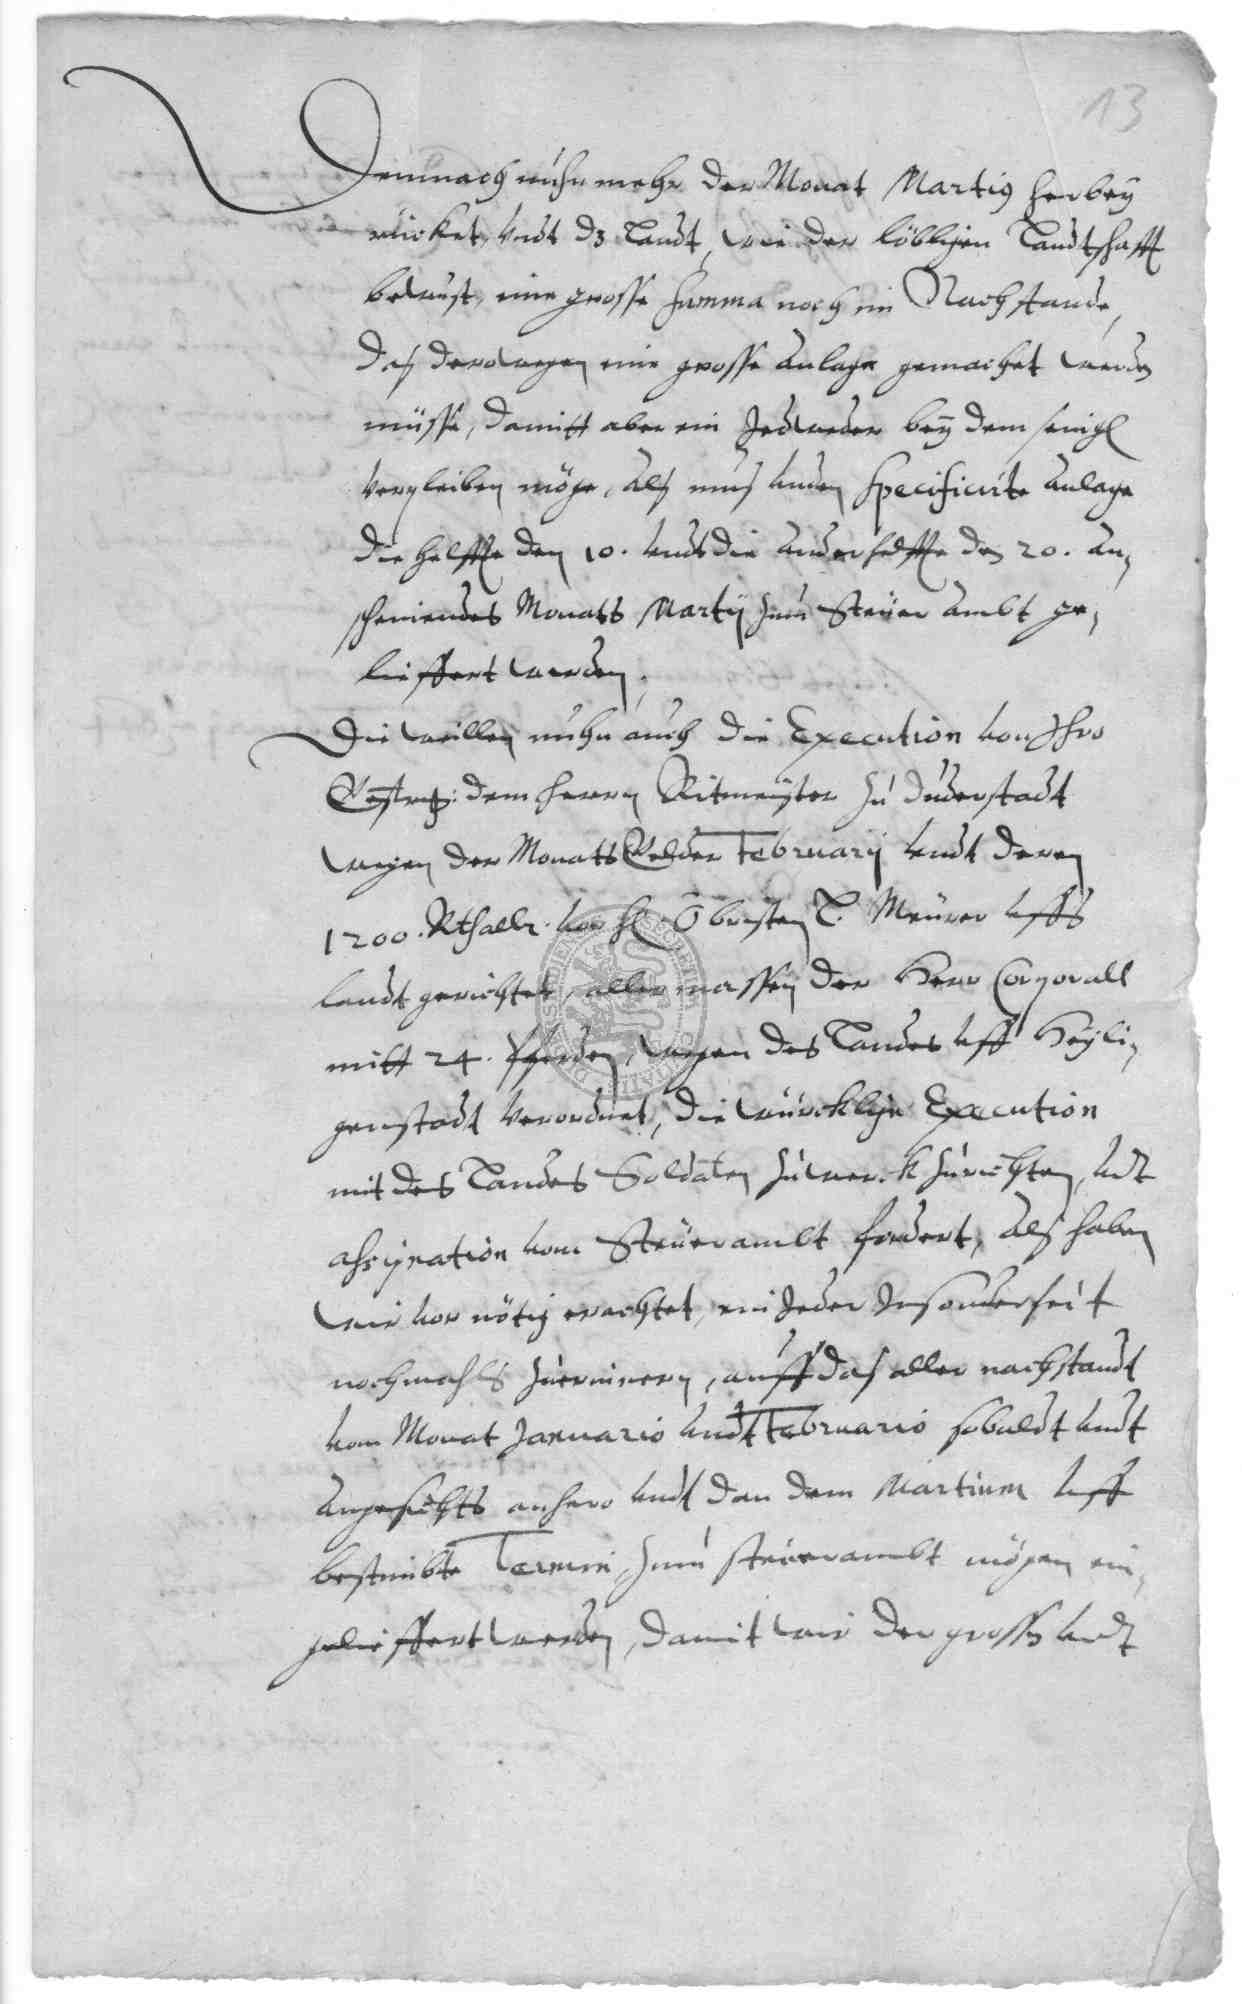 13
Demnach nuhn mehr der Monat Martius herbey
rücket, undt dz Landt, wie der löblichen Landtschafft
bewust, eine grosse summa noch im Nachstande,
das derowegen eine grosse anlage gemachet werden
müsse, damitt aber ein Jedweder bey dem seinigen
verpleiben möge, als mus unden specificirte anlage
die helffte den 10. undt die ander helffte den 20. an,
scheinendes Monats Martij zum Steuer ambt ge,
lieffert werden.
Die weillen nuhn auch die Execution von Ihro
Gestr: dem herrn Ritmeister zu duderstadt
wegen der Monats Gelder Februarij undt deren
1200. Rthallr. vor H. Obristen T. Meurer uffs
landt gerichtet, aller massen der Herr Corporall
mitt 24. Pferden, wegen des Landes uff Heyli,
genstadt verordnet, die würckliche Execution
mit des Landes Soldaten zu werck zurichten, undt
assignation vom Steuerambt fordert, als haben
wir vor nötig erachtet, ein Jeder Insonderheit
nochmahls zuerinnern, auff das aller nachstandt
vom Monat Januario undt Februario sobaldt undt
angesichts anhero undt dan dem Martium uff
bestimbte Termin, zum steuerambt mögen ein,
gelieffert werden, damit wir der grossen undt